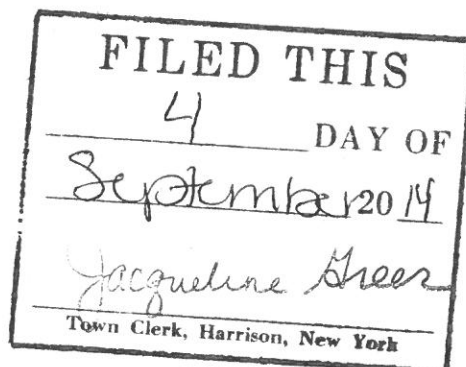 FILED THIS
4 DAY OF
September 2014
Jacqueline Greer
Town Clerk, Harrison, New York